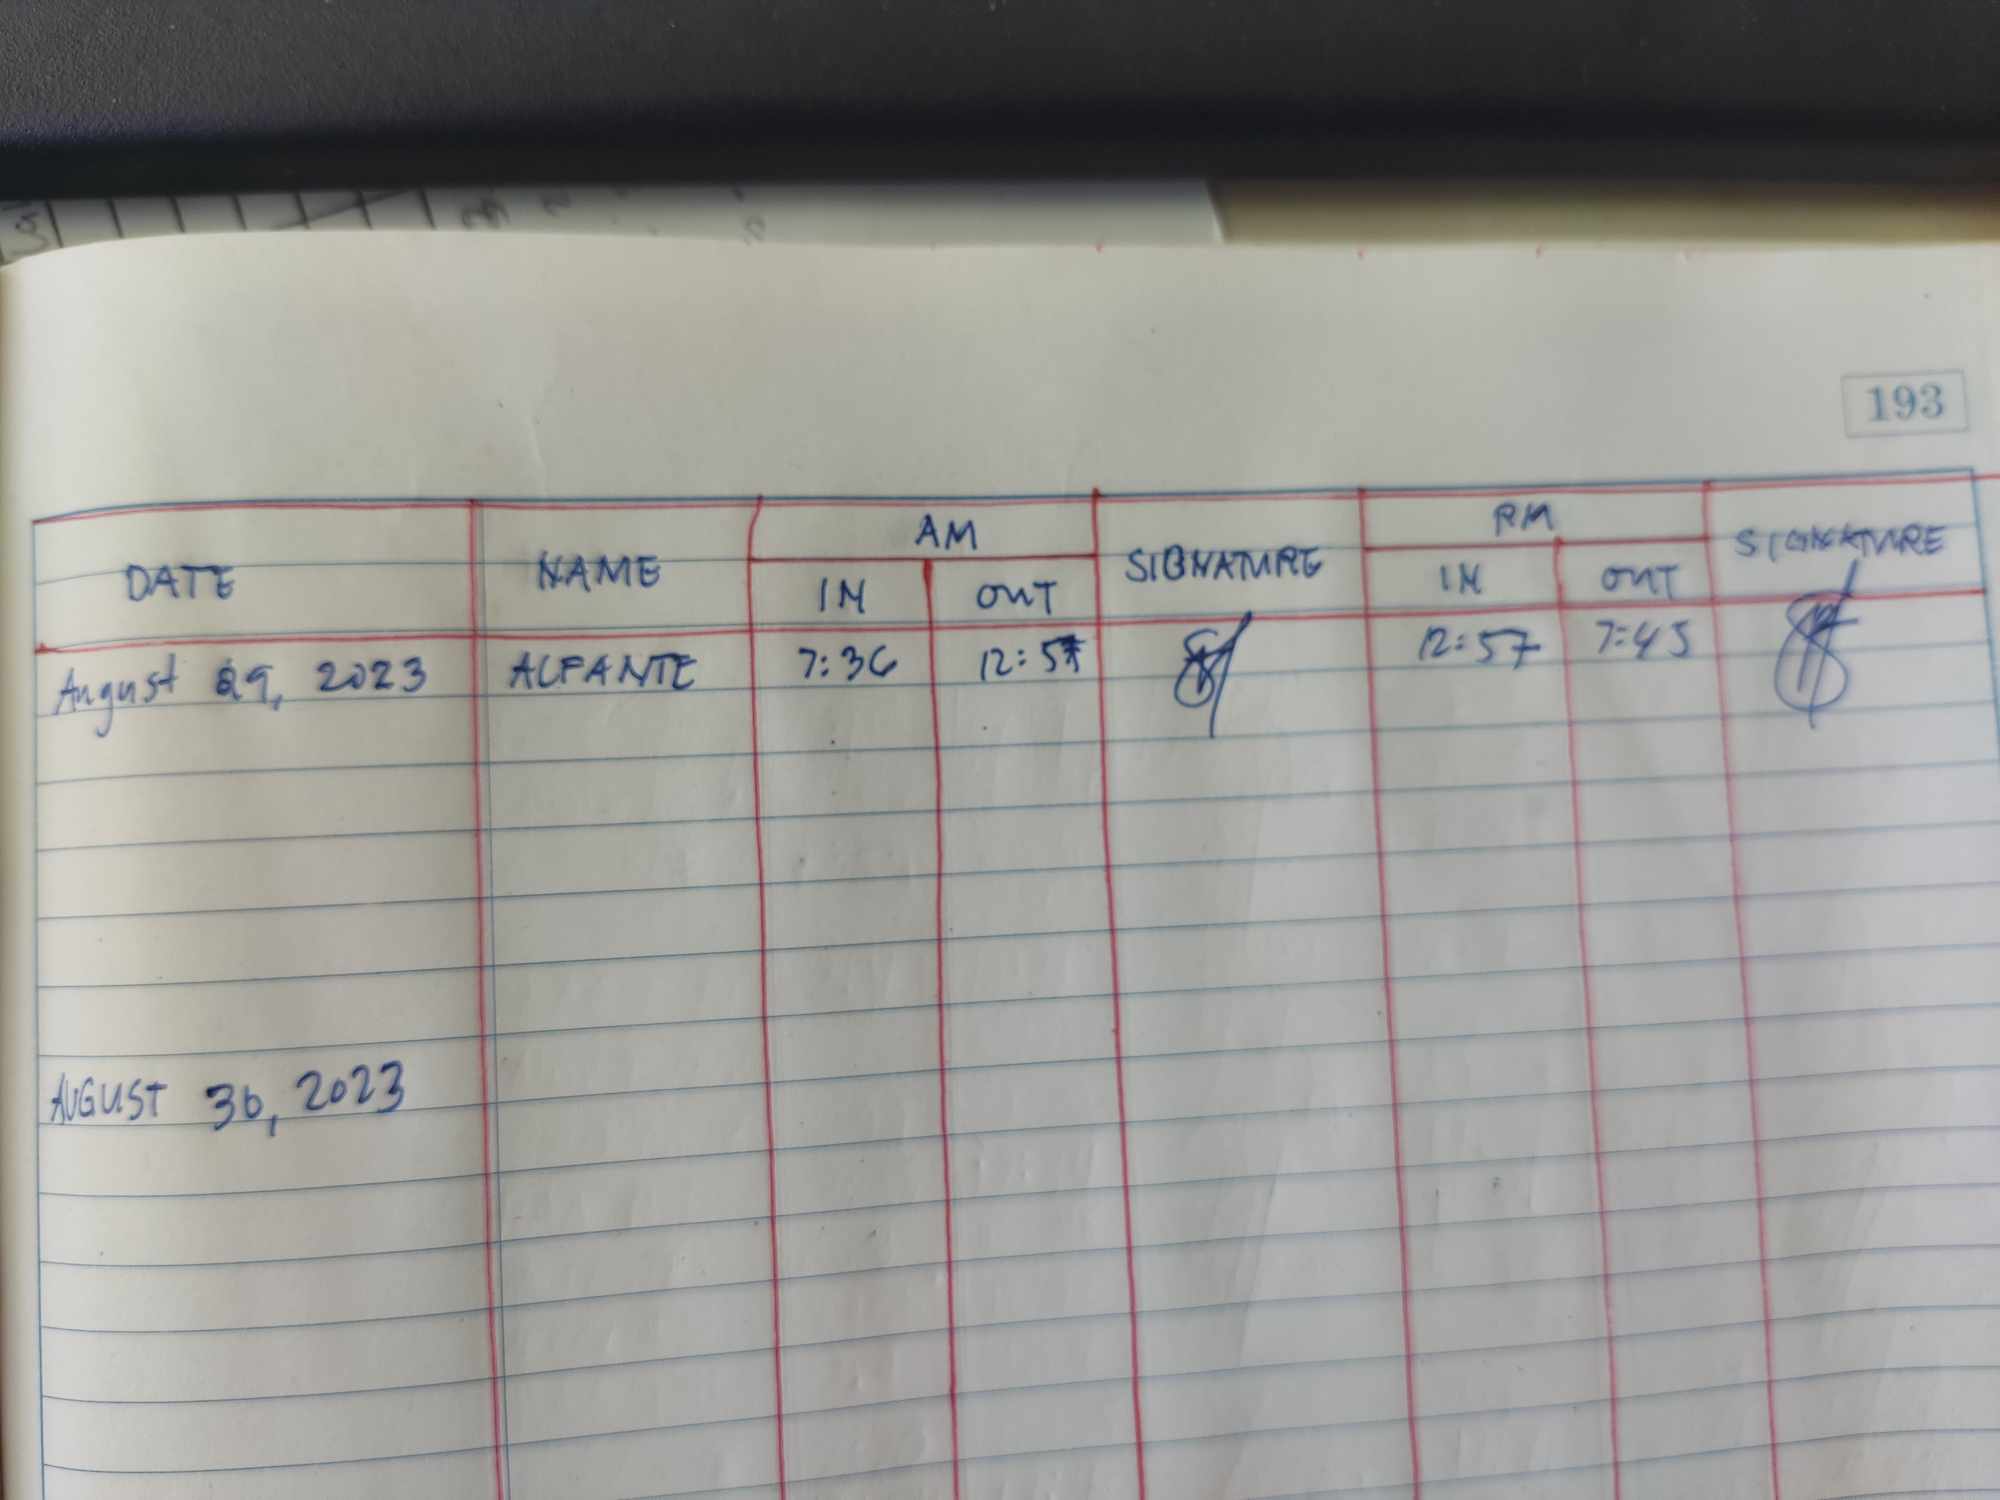 193
DATE NAME AM SIGNATURE PM SIGNATURE
IN OUT IN OUT
August 29, 2023 ALFANTE 7:36 12:57 12:57 7:45
AUGUST 30, 2023